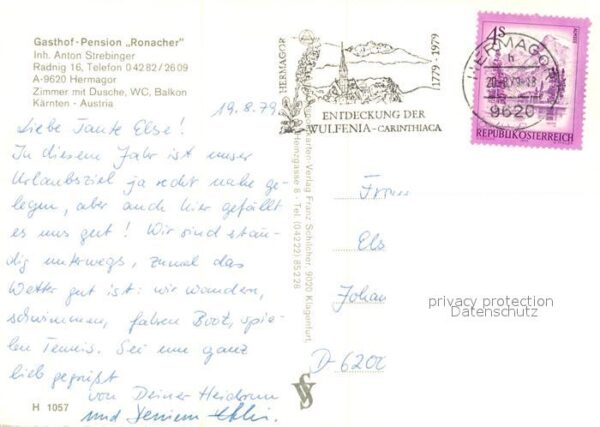 Gasthof-Pension „Ronacher"
Inh. Anton Strebinger
Radnig 16, Telefon 0 42 82 / 26 09
A-9620 Hermagor
Zimmer mit Dusche, WC, Balkon
Kärnten - Austria
19.8.79
Liebe Tante Else!
In diesem Jahr ist unser
Urlaubsziel ja recht nahe ge-
legen, aber auch hier gefällt
es uns gut! Wir sind stän-
dig unterwegs, zumal das
Wetter gut ist: wir wandern,
schwimmen, fahren Boot, spie-
len Tennis. Sei nun ganz
lieb gegrüßt
von Deiner Heidrun
und Deinem
H 1057
HERMAGOR
1779-1979
ENTDECKUNG DER
WULFENIA-CARINTHIACA
Karten-Verlag Franz Schilcher, 9020 Klagenfurt,
Henzgasse 6 · Tel. (0 42 22) 85 2 26
VS
4S
HERMAGOR
9620
REPUBLIK ÖSTERREICH
Frau
Els
Johan
D-6200
privacy protection
Datenschutz